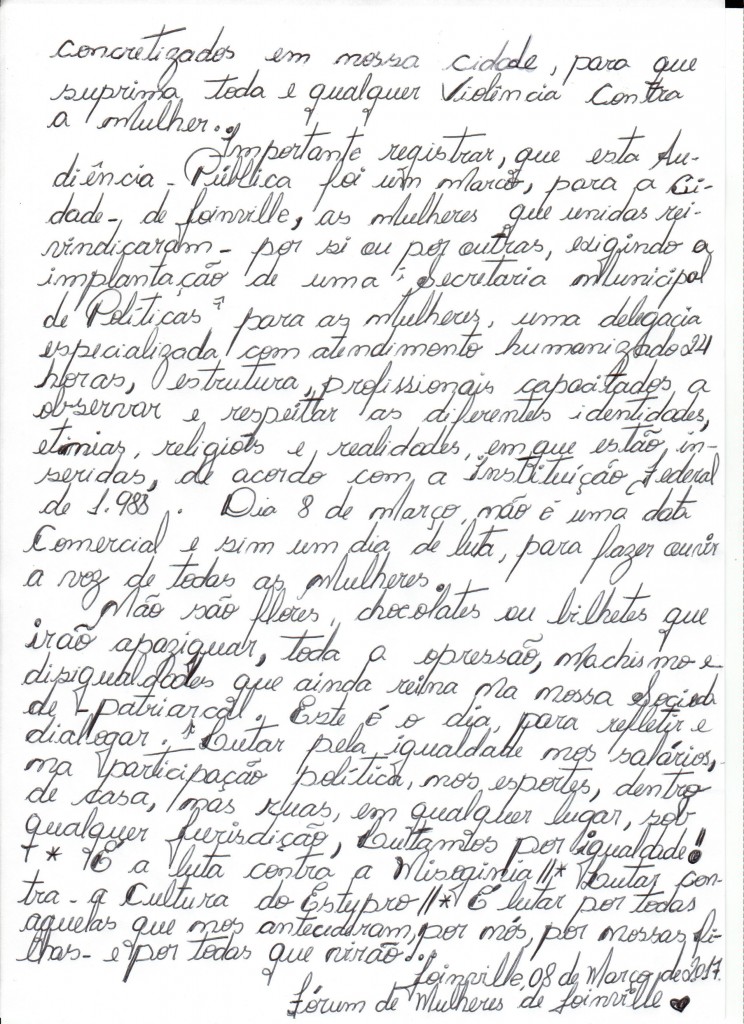 concretizados em nossa cidade, para que
suprima toda e qualquer Violência Contra
a Mulher..
Importante registrar, que esta Au-
diência - Pública foi um março, para a Ci-
dade-, de Joinville, as Mulheres que unidas rei-
vindicaram - por si ou por outras, exigindo a
implantação de uma "Secretaria Municipal
de Políticas" para as Mulheres, uma delegacia
especializada com atendimento humanizado 24
horas, estrutura, profissionais capacitados a
observar e respeitar as diferentes identidades,
etinias, religiões e, realidades, em que estão, in-
seridas, de acordo com a Instituição Federal
de 1.988 . Dia 8 de março, não é uma data
Comercial e sim um dia de luta, para fazer ouvir
a voz de todas as Mulheres.
Não são flores, chocolates ou bilhetes que
irão apaziguar, toda a opressão, Machismo e
disigualdades que ainda reina na nossa Socieda
de - patriarcal. Este é o dia, para refletir e
dialogar. * Lutar pela igualdade nos salários,
na participação política, nos esportes, dentro
de casa, nas ruas, em qualquer lugar, sob
qualquer Jurisdição, Luttamos por igualdade!
+ * É a luta contra a Misoginia//* Lutar con-
tra - a Cultura do Estypro//* É lutar por todas
aquelas que nos antecideram, por nós, por nossas fi-
lhas - e por todas que virão..
Joinville, 08 de Março de 2017.
Fórum de Mulheres de Joinville ♥